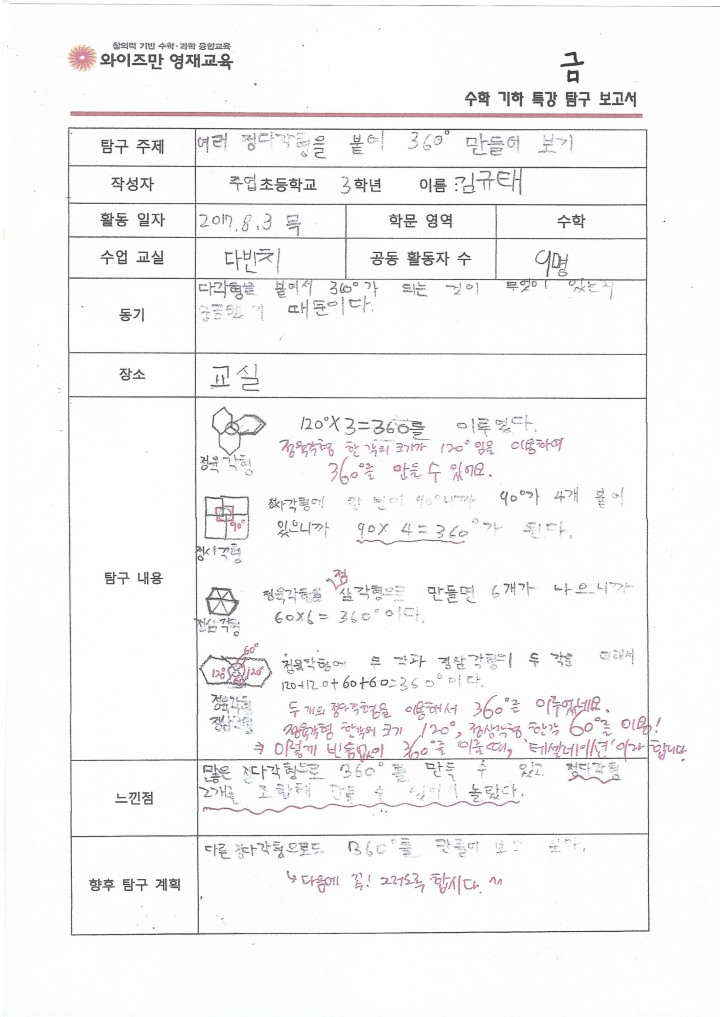 창의력 기반 수학·과학 융합교육
와이즈만 영재교육
금
수학 기하 특강 탐구 보고서
탐구 주제 여러 정다각형을 붙여 360° 만들어 보기
작성자 주엽초등학교 3학년 이름 : 김규태
활동 일자 2017.8.3 목 학문 영역 수학
수업 교실 다빈치 공동 활동자 수 9명
동기
다각형을 붙여서 360°가 되는 것이 무엇이 있는지
때문이다.
장소 교실
탐구 내용
정육각형
120°×3=360를 이루었다.
정육각형 한 각의 크기가 120°임을 이용하여
360°를 만들 수 있어요.
90°
정사각형
정사각형에 한 변이 90°니까 90°가 4개 붙어
있으니까 90×4=360°가 된다.
정삼각형
정
정육각형을 삼각형으로 만들면 6개가 나오니까
60×6=360°이다.
60°
120° 120°
정육각형
정삼각형
정육각형에 두 각과 정삼각형의 두 각을 더해서
120+120+60+60=360°이다.
두 개의 정다각형을 이용해서 360°를 이루었네요.
정육각형 한각의 크기 120°, 정삼각형 한각 60°를 이용!
⇒ 이렇게 빈틈없이 360°를 이룰때, '테셀레이션'이라 합니다.
느낀점
많은 정다각형으로 360°를 만들 수 있고 정다각형
2개를 조합해 만들 수 있어서 놀랐다.
향후 탐구 계획
다른 정다각형으로도 360°를 만들어 보고 싶다.
↳ 다음에 꼭! 그러도록 합시다. ^^